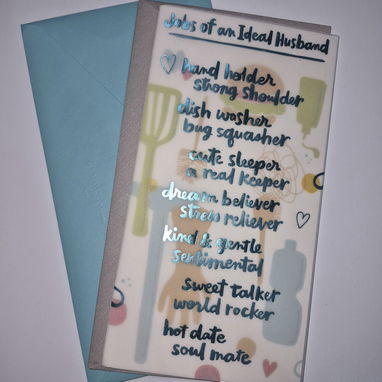 Jobs of an Ideal Husband
hand holder
strong shoulder
dish washer
bug squasher
cute sleeper
a real keeper
dream believer
stress reliever
kind & gentle
sentimental
sweet talker
world rocker
hot date
soul mate